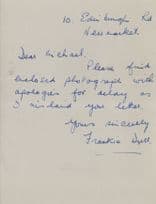 10. Edinburgh Rd
Newmarket
Dear Michael.
Please find
enclosed photograph with
apologies for delay as
I mislaid your letter.
Yours sincerely
Frankie